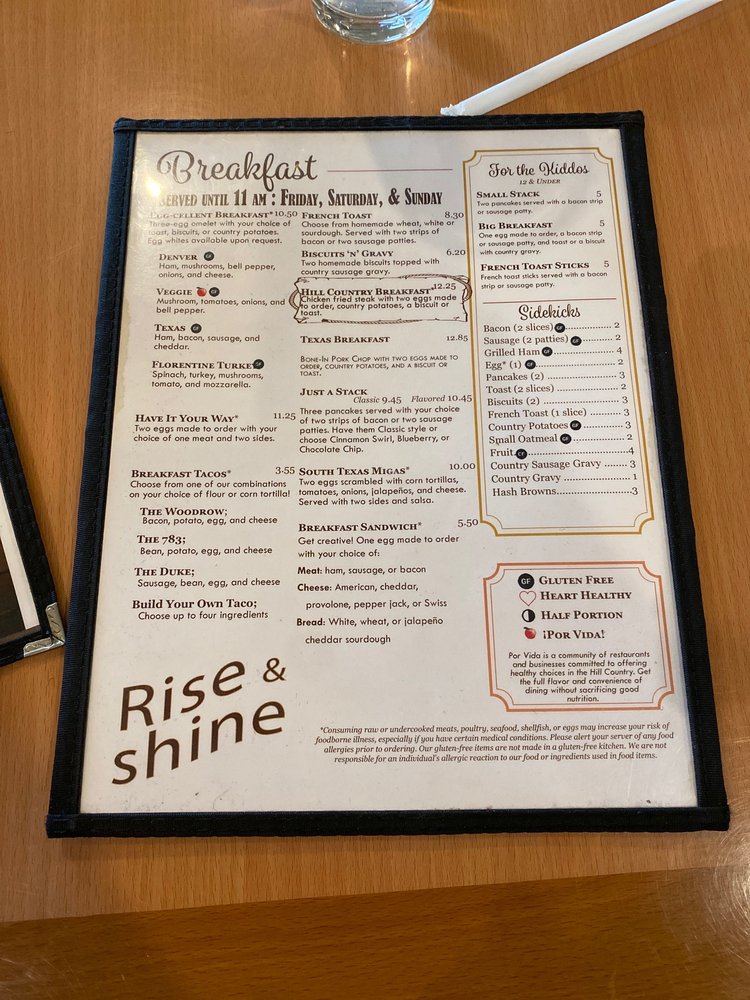 Breakfast
SERVED UNTIL 11 AM : FRIDAY, SATURDAY, & SUNDAY
EGG-CELLENT BREAKFAST* 10.50
Three-egg omelet with your choice of
toast, biscuits, or country potatoes.
Egg whites available upon request.
DENVER GF
Ham, mushrooms, bell pepper,
onions, and cheese.
VEGGIE GF
Mushroom, tomatoes, onions, and
bell pepper.
TEXAS GF
Ham, bacon, sausage, and
cheddar.
FLORENTINE TURKEY GF
Spinach, turkey, mushrooms,
tomato, and mozzarella.
HAVE IT YOUR WAY* 11.25
Two eggs made to order with your
choice of one meat and two sides.
BREAKFAST TACOS* 3.55
Choose from one of our combinations
on your choice of flour or corn tortilla!
THE WOODROW;
Bacon, potato, egg, and cheese
THE 783;
Bean, potato, egg, and cheese
THE DUKE;
Sausage, bean, egg, and cheese
Build Your Own Taco;
Choose up to four ingredients
Rise &
shine
FRENCH TOAST 8.30
Choose from homemade wheat, white or
sourdough. Served with two strips of
bacon or two sausage patties.
BISCUITS 'N' GRAVY 6.20
Two homemade biscuits topped with
country sausage gravy.
HILL COUNTRY BREAKFAST* 12.25
Chicken fried steak with two eggs made
to order, country potatoes, a biscuit or
toast.
TEXAS BREAKFAST 12.85
BONE-IN PORK CHOP WITH TWO EGGS MADE TO
ORDER, COUNTRY POTATOES, AND A BISCUIT OR
TOAST.
JUST A STACK
Classic 9.45 Flavored 10.45
Three pancakes served with your choice
of two strips of bacon or two sausage
patties. Have them Classic style or
choose Cinnamon Swirl, Blueberry, or
Chocolate Chip.
SOUTH TEXAS MIGAS* 10.00
Two eggs scrambled with corn tortillas,
tomatoes, onions, jalapeños, and cheese.
Served with two sides and salsa.
BREAKFAST SANDWICH* 5.50
Get creative! One egg made to order
with your choice of:
Meat: ham, sausage, or bacon
Cheese: American, cheddar,
provolone, pepper jack, or Swiss
Bread: White, wheat, or jalapeño
cheddar sourdough
For the Kiddos
12 & UNDER
SMALL STACK 5
Two pancakes served with a bacon strip
or sausage patty.
BIG BREAKFAST 5
One egg made to order, a bacon strip
or sausage patty, and toast or a biscuit
with country gravy.
FRENCH TOAST STICKS 5
French toast sticks served with a bacon
strip or sausage patty.
Sidekicks
Bacon (2 slices) GF .................. 2
Sausage (2 patties) GF ............ 2
Grilled Ham GF ...................... 4
Egg* (1) GF ............................ 2
Pancakes (2) ........................... 3
Toast (2 slices) ........................ 2
Biscuits (2) ............................. 3
French Toast (1 slice) .......... 3
Country Potatoes GF ............. 3
Small Oatmeal GF ................. 2
Fruit GF ................................. 4
Country Sausage Gravy ....... 3
Country Gravy ..................... 1
Hash Browns ........................ 3
GF GLUTEN FREE
HEART HEALTHY
HALF PORTION
¡POR VIDA!
Por Vida is a community of restaurants
and businesses committed to offering
healthy choices in the Hill Country. Get
the full flavor and convenience of
dining without sacrificing good
nutrition.
*Consuming raw or undercooked meats, poultry, seafood, shellfish, or eggs may increase your risk of
foodborne illness, especially if you have certain medical conditions. Please alert your server of any food
allergies prior to ordering. Our gluten-free items are not made in a gluten-free kitchen. We are not
responsible for an individual's allergic reaction to our food or ingredients used in food items.